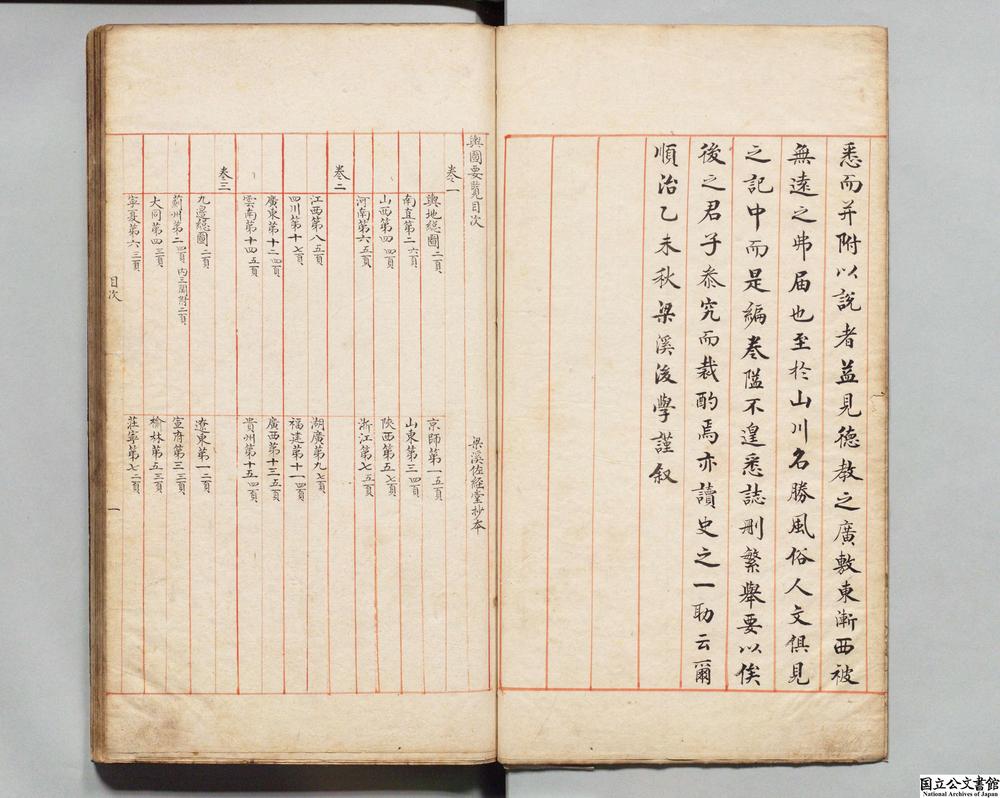 悉而并附以説者益見德教之廣敷東漸西被
無遠之弗届也至於山川名勝風俗人文俱見
之記中而是編卷隘不遑悉誌刪繁舉要以俟
後之君子叅究而裁酌焉亦讀史之一助云爾
順治乙未秋梁溪後學謹叙
輿圖要覽目次
梁溪佐經堂抄本
卷一
輿地總圖二頁
京師第一五頁
南直第二六頁
山東第三四頁
山西第四四頁
陝西第五七頁
河南第六五頁
浙江第七五頁
卷二
江西第八五頁
湖廣第九七頁
四川第十七頁
福建第十一四頁
廣東第十二四頁
廣西第十三五頁
雲南第十四五頁
貴州第十五四頁
卷三
九邊總圖二頁
遼東第一二頁
薊州第二四頁 内三關附二頁
宣府第三三頁
大同第四三頁
榆林第五三頁
寧夏第六三頁
莊寧第七二頁
目次
一
国立公文書館
National Archives of Japan